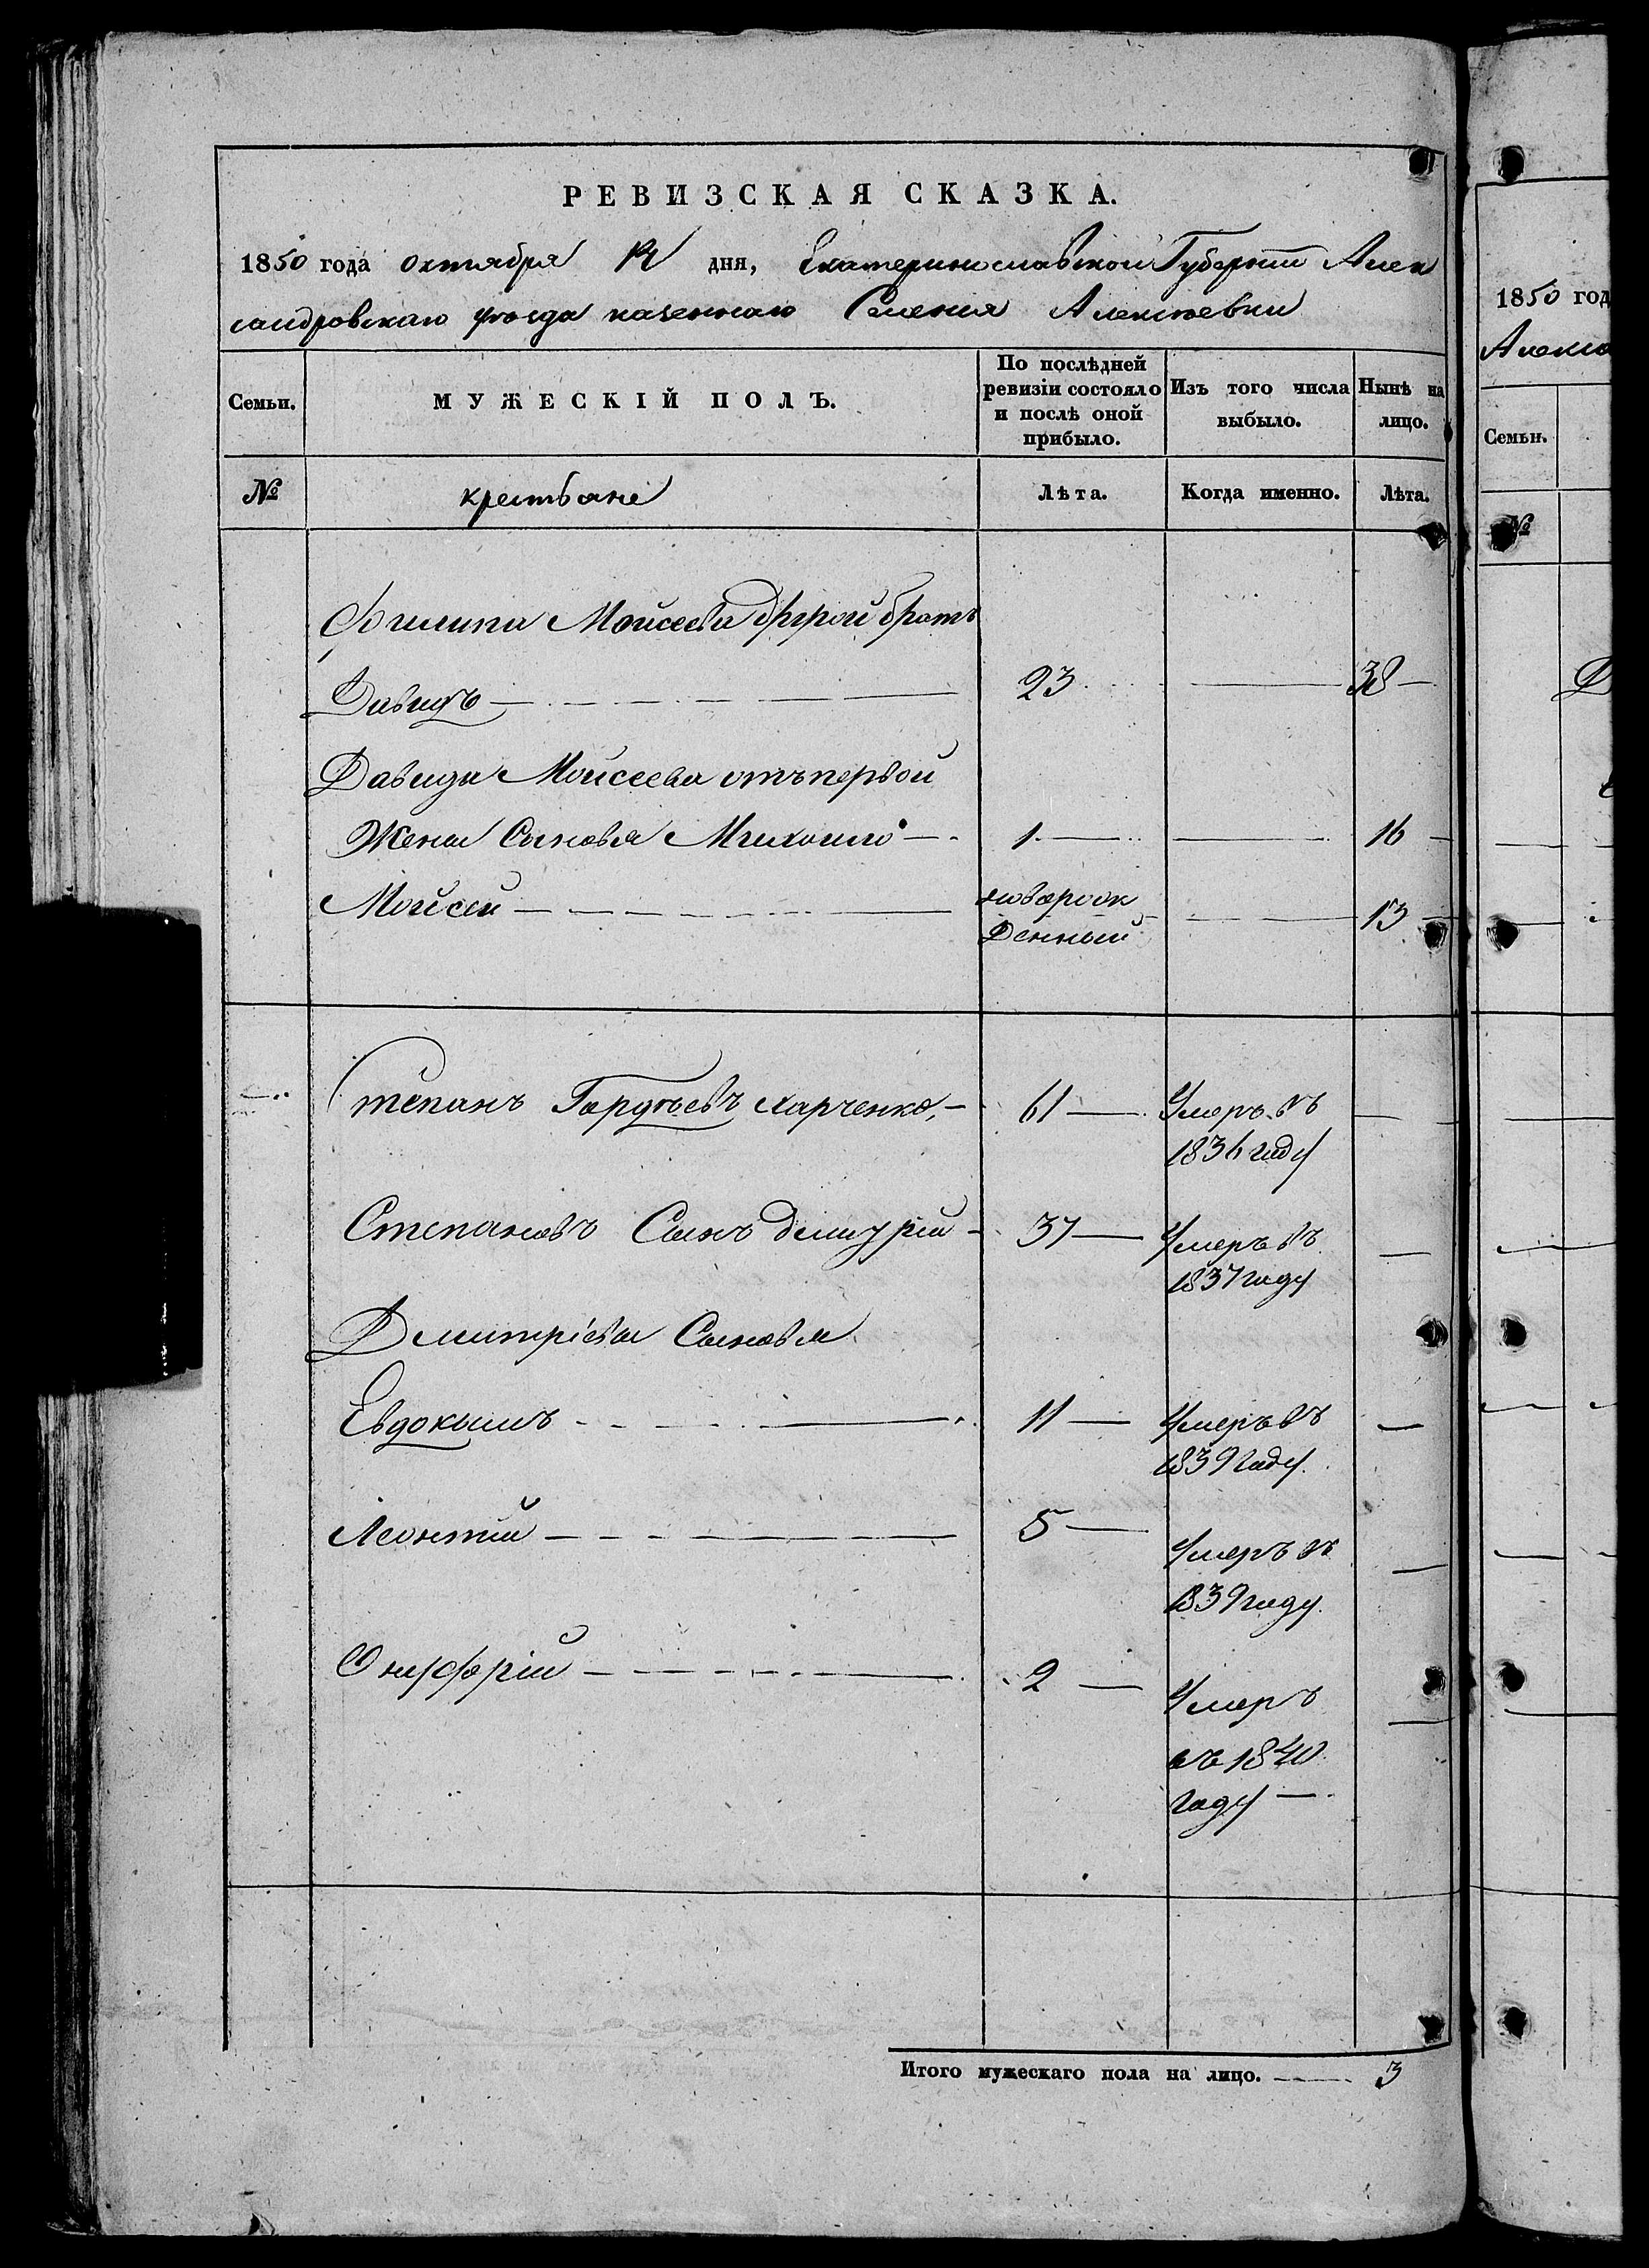 РЕВИЗСКАЯ СКАЗКА.
1850 года октября 14 дня, Екатеринославской Губернии Алек
сандровскаго уѣзда казеннаго Селения Алексѣевки
Семьи.
МУЖЕСКІЙ ПОЛЪ.
По послѣдней ревизіи состояло и послѣ оной прибыло.
Изъ того числа выбыло.
Нынѣ на лицо.
№
крестьяне
Лѣта.
Когда именно.
Лѣта.
Филипа Моисеева другой братъ
Давидъ — 23 — 38 —
Давида Моисеева отъ первой
Жены Сыновья Михаило — 1 — 16 —
Моисей — новорож
денный — 13 —
Степанъ Гордѣевъ Харченко, — 61 — Умеръ въ —
1836 году
Степановъ Сынъ Дмитрій — 37 — Умеръ въ —
1837 году
Дмитріевы Сыновья
Евдокымъ — 11 — Умеръ въ —
1839 году.
Леонтій — 5 — Умеръ въ —
1839 году.
Онуфрій — 2 — Умеръ —
въ 1840
году —
Итого мужескаго пола на лицо. — 3
1850 год
Алекса
Семьи.
№
Д